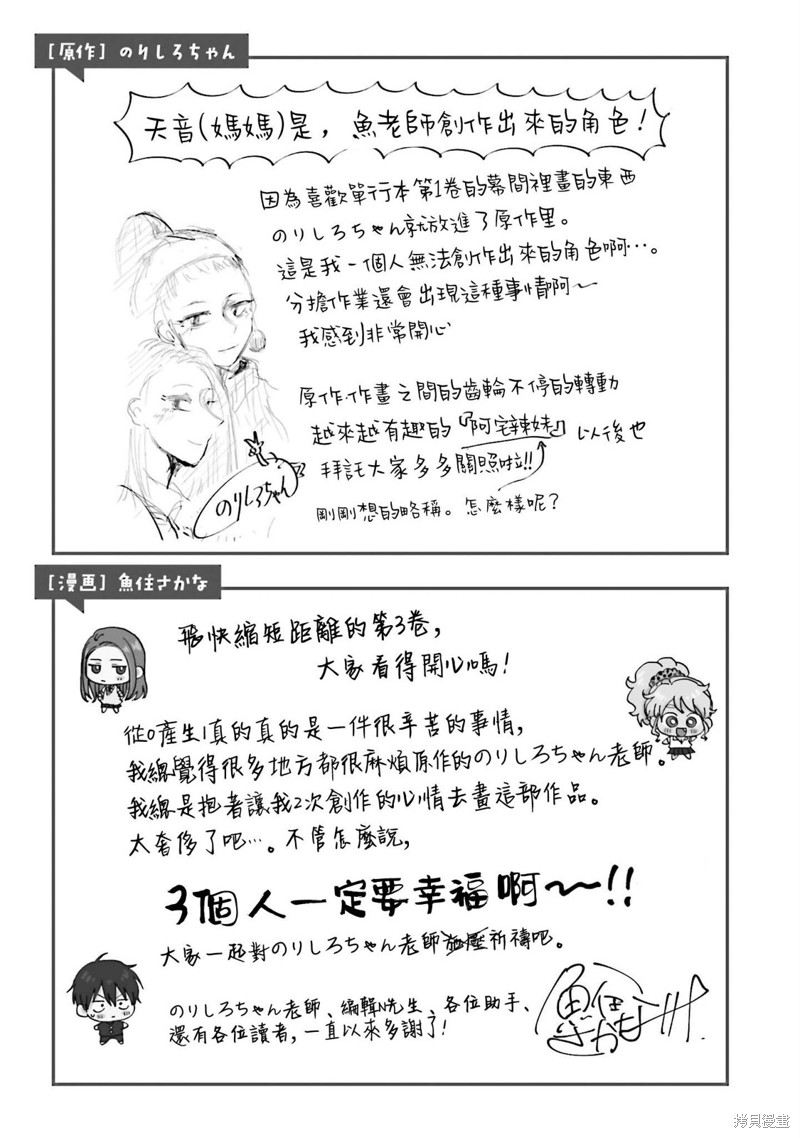 [原作] のりしろちゃん
天音(媽媽)是，魚老師創作出來的角色！
因為喜歡單行本第1卷的幕間裡畫的東西
のりしろちゃん就放進了原作里。
這是我一個人無法創作出來的角色啊…。
分擔作業還會出現這種事情啊～
我感到非常開心
原作作畫之間的齒輪不停的轉動
越來越有趣的『阿宅辣妹』以後也
拜託大家多多關照啦!!
剛剛想的略稱。怎麼樣呢？
のりしろちゃん
[漫画] 魚住さかな
飛快縮短距離的第3卷，
大家看得開心嗎！
從0產生1真的真的是一件很辛苦的事情，
我總覺得很多地方都很麻煩原作的のりしろちゃん老師。
我總是抱著讓我2次創作的心情去畫這部作品。
太奢侈了吧…。不管怎麼說，
3個人一定要幸福啊～～!!
大家一起對のりしろちゃん老師施壓祈禱吧。
のりしろちゃん老師、編輯N先生、各位助手、
還有各位讀者，一直以來多謝了！
魚住
さかな
拷貝漫畫